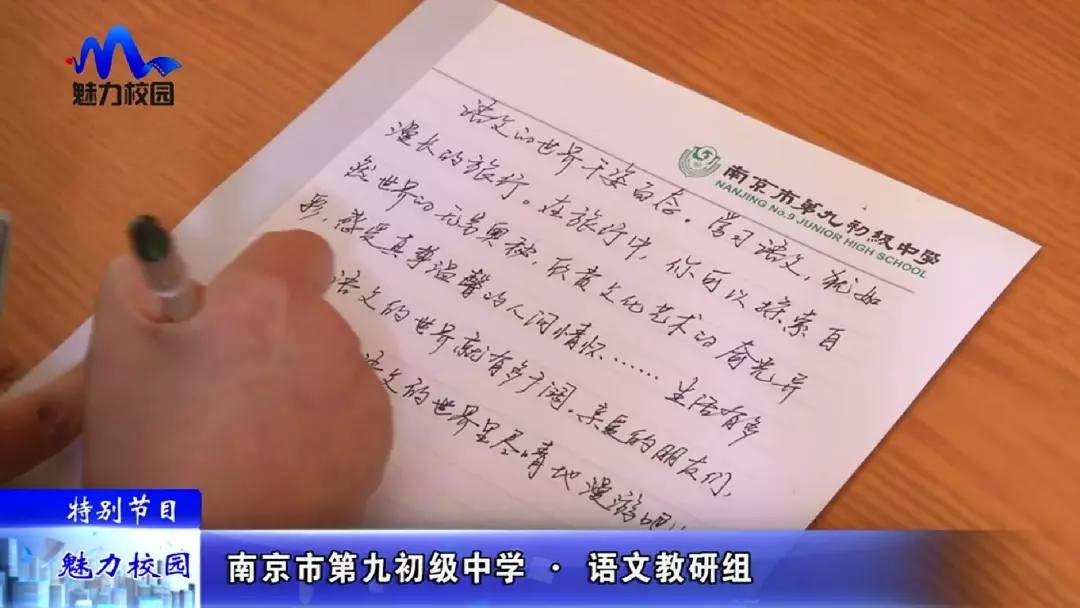 魅力校园
南京市第九初級中學
NANJING No.9 JUNIOR HIGH SCHOOL
语文的世界千姿百态。学习语文,犹如
漫长的旅行。在旅行中,你可以探索自
然世界的无穷奥秘,欣赏文化艺术的奇光异
彩,感受真挚温馨的人间情怀……生活有多
语文的世界就有多广阔。亲爱的朋友们,
语文的世界里尽情地漫游吧!
特别节目
魅力校园
南京市第九初级中学 · 语文教研组